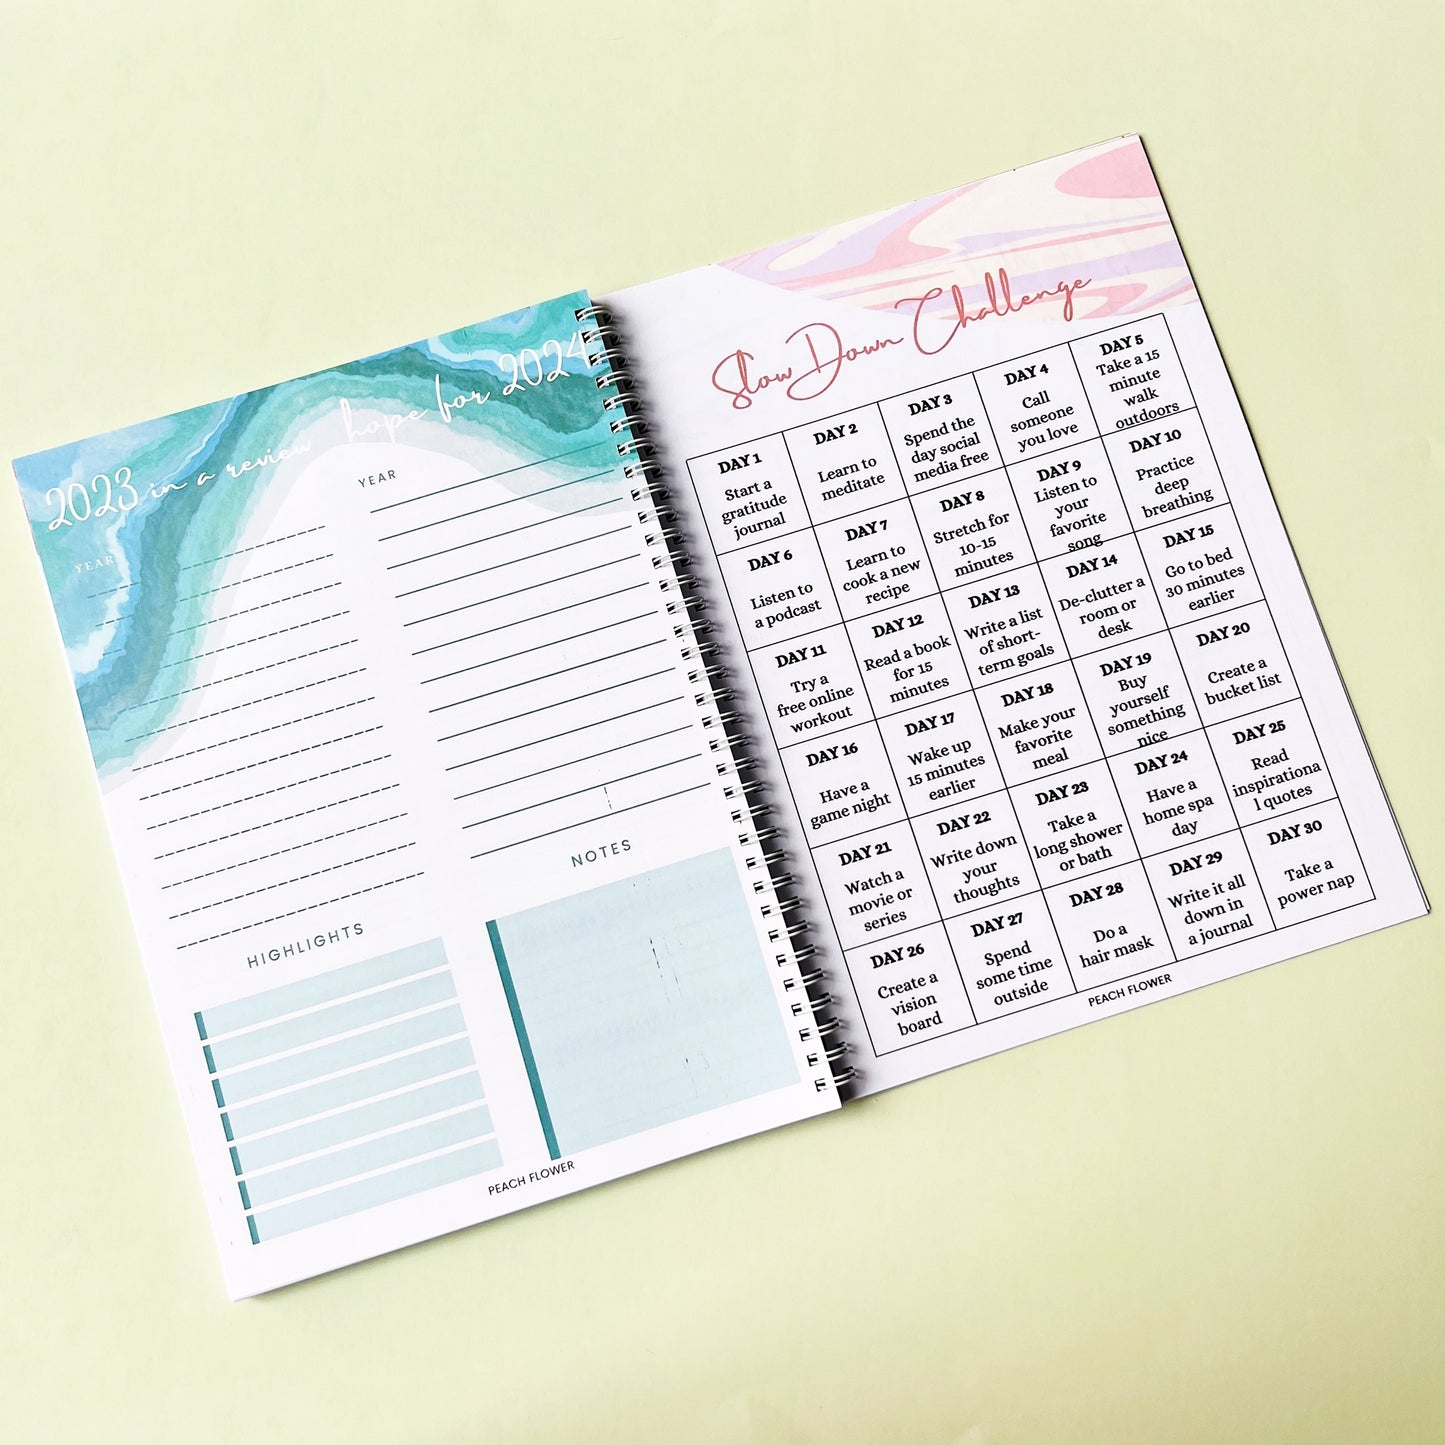 2023 in a review hope for 2024
YEAR
YEAR
HIGHLIGHTS
NOTES
PEACH FLOWER
Slow Down Challenge
DAY 1
Start a
gratitude
journal
DAY 2
Learn to
meditate
DAY 3
Spend the
day social
media free
DAY 4
Call
someone
you love
DAY 5
Take a 15
minute
walk
outdoors
DAY 6
Listen to
a podcast
DAY 7
Learn to
cook a new
recipe
DAY 8
Stretch for
10-15
minutes
DAY 9
Listen to
your
favorite
song
DAY 10
Practice
deep
breathing
DAY 11
Try a
free online
workout
DAY 12
Read a book
for 15
minutes
DAY 13
Write a list
of short-
term goals
DAY 14
De-clutter a
room or
desk
DAY 15
Go to bed
30 minutes
earlier
DAY 16
Have a
game night
DAY 17
Wake up
15 minutes
earlier
DAY 18
Make your
favorite
meal
DAY 19
Buy
yourself
something
nice
DAY 20
Create a
bucket list
DAY 21
Watch a
movie or
series
DAY 22
Write down
your
thoughts
DAY 23
Take a
long shower
or bath
DAY 24
Have a
home spa
day
DAY 25
Read
inspirationa
l quotes
DAY 26
Create a
vision
board
DAY 27
Spend
some time
outside
DAY 28
Do a
hair mask
DAY 29
Write it all
down in
a journal
DAY 30
Take a
power nap
PEACH FLOWER